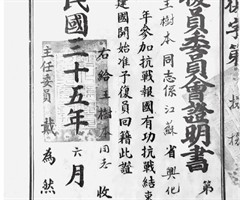 復員委員會證明書
王樹本同志係江蘇省興化
年參加抗戰報國有功抗戰結束
建國開始准予復員回籍此證
右給王樹本同志收
主任委員 戴為然
民國三十五年六月